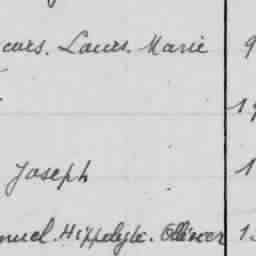 Louis. Marie 9
1
Joseph 1
nuel. Hippolyte. Ollivier 1